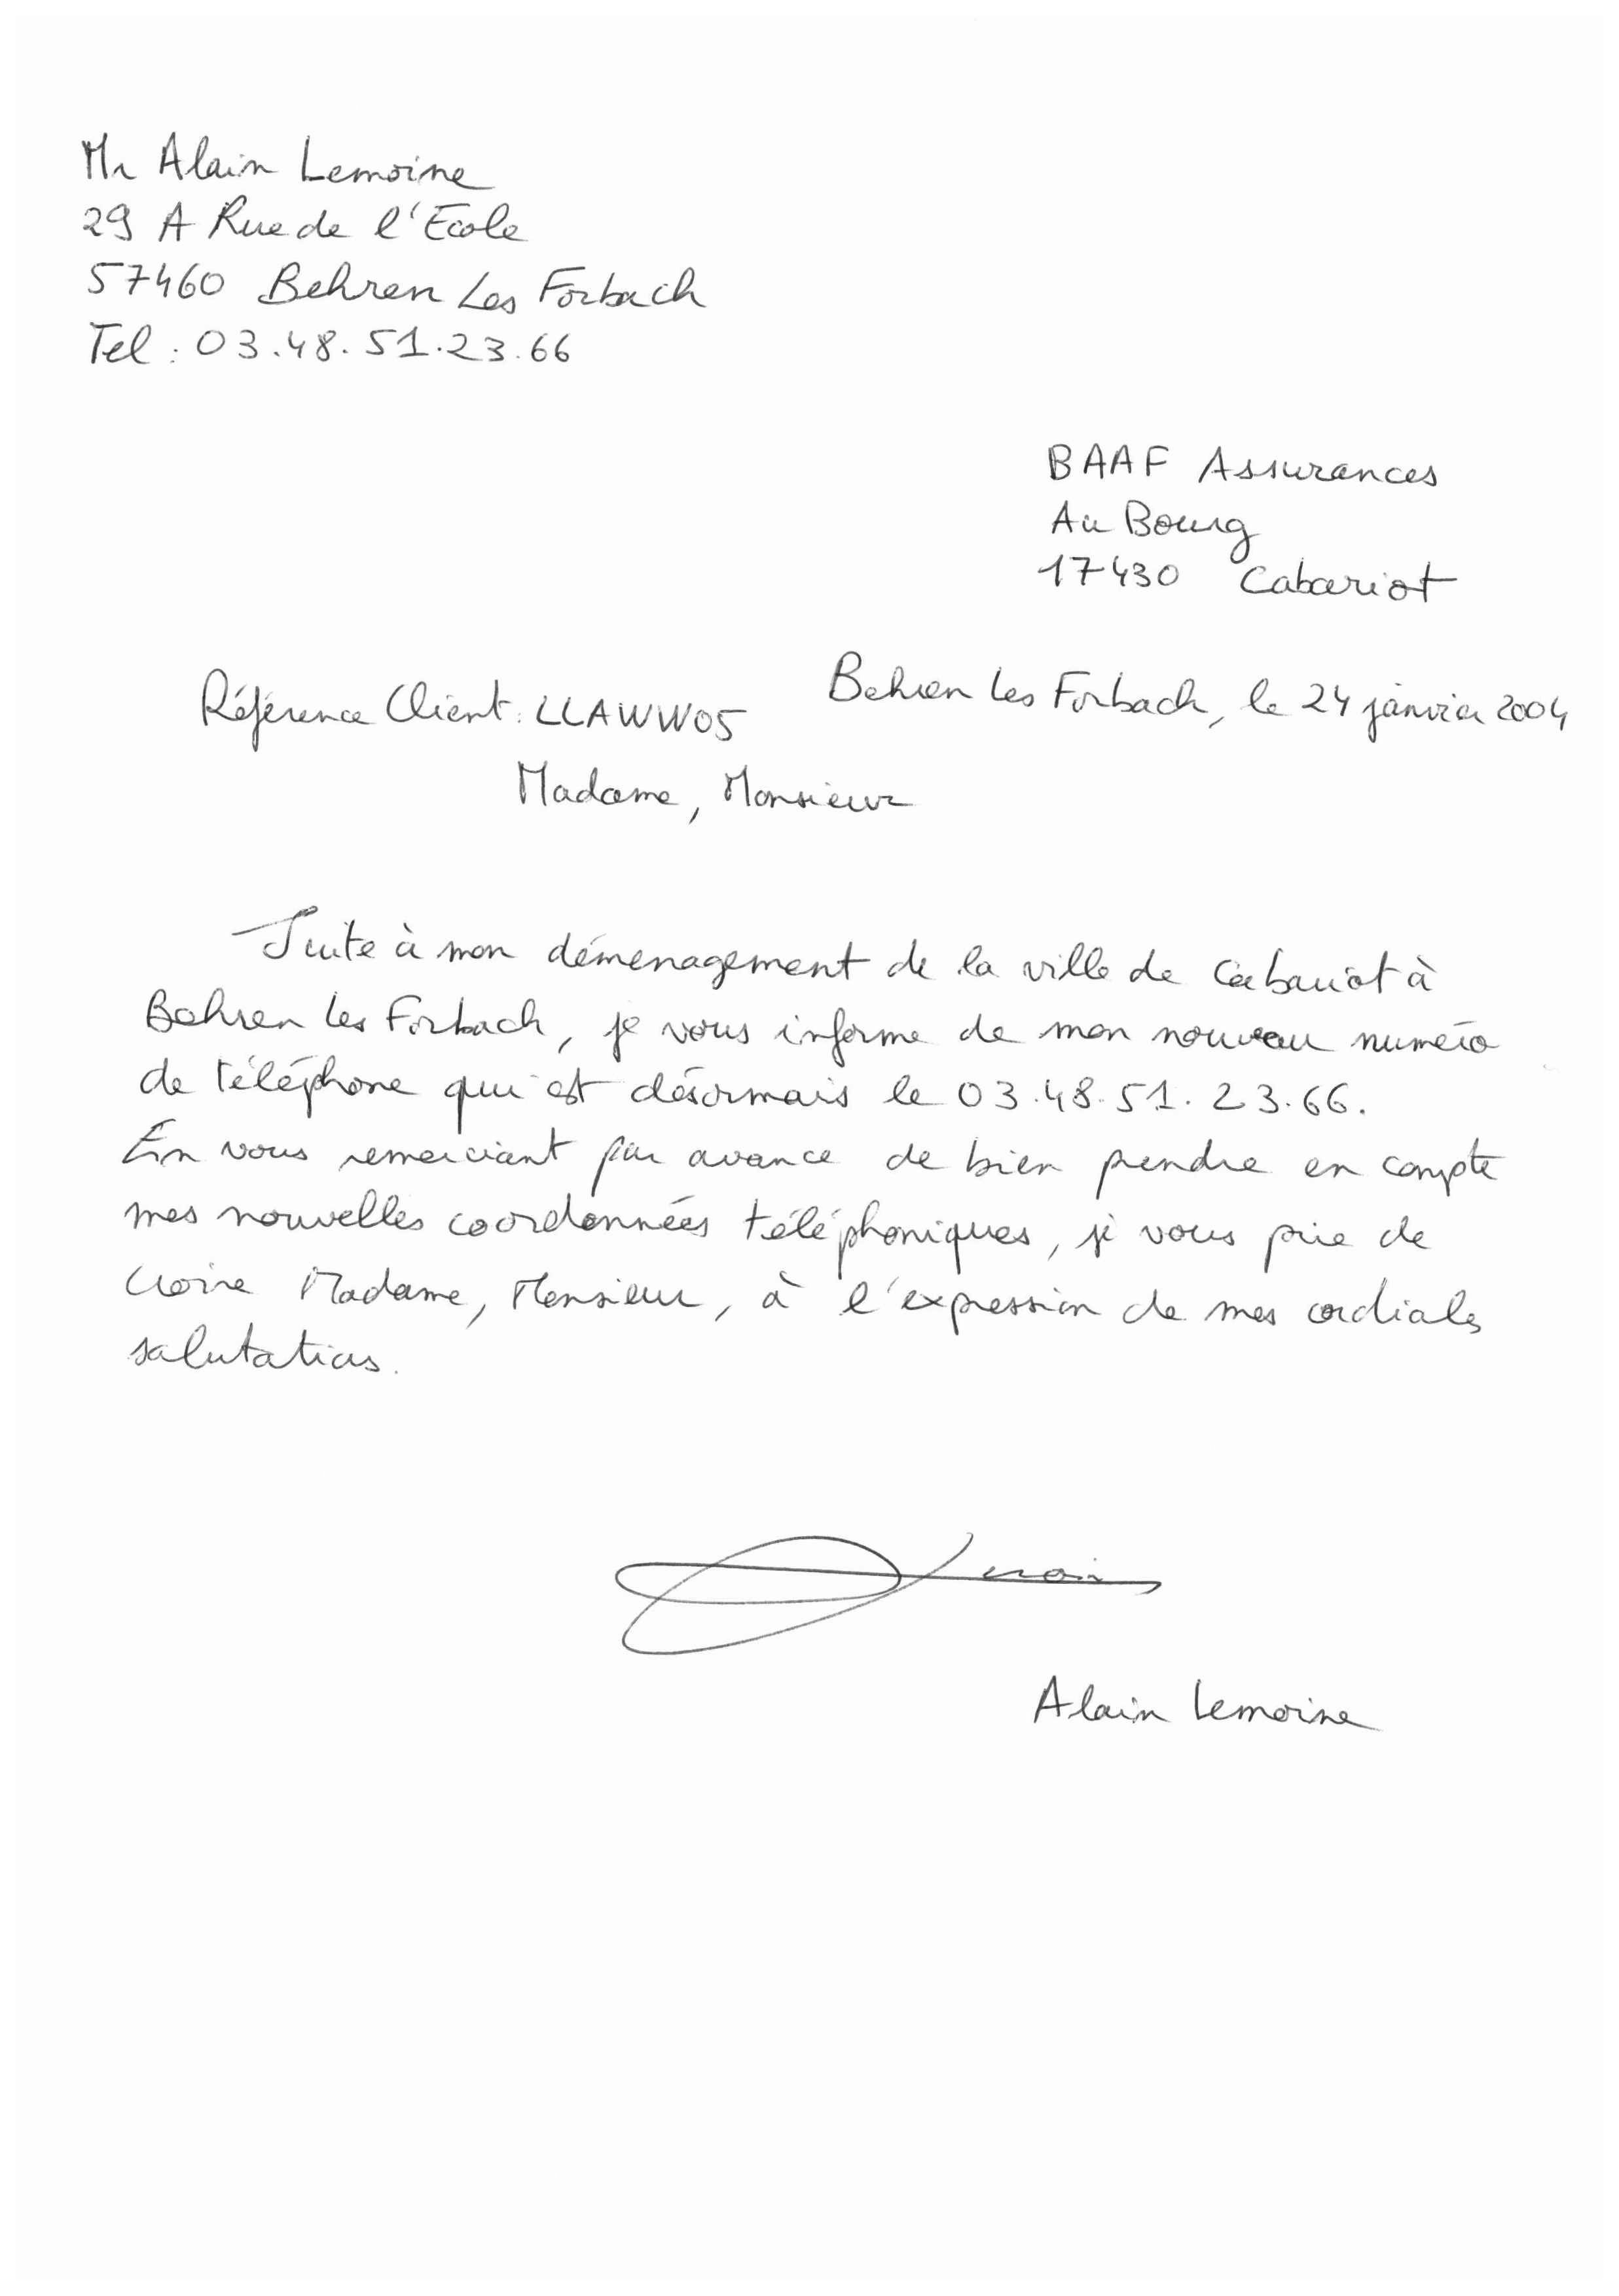 Mr Alain Lemoine
29 A Rue de l'Ecole
57460 Behren Les Forbach
Tel : 03.48.51.23.66
BAAF Assurances
Au Bourg
17430 Cabariot
Behren Les Forbach, le 24 janvier 2004
Référence Client : LLAWW05
Madame, Monsieur
Suite à mon déménagement de la ville de Cabariot à
Behren Les Forbach, je vous informe de mon nouveau numéro
de téléphone qui est désormais le 03.48.51.23.66.
En vous remerciant par avance de bien prendre en compte
mes nouvelles coordonnées téléphoniques, je vous prie de
croire Madame, Monsieur, à l'expression de mes cordiales
salutations.
Alain Lemoine